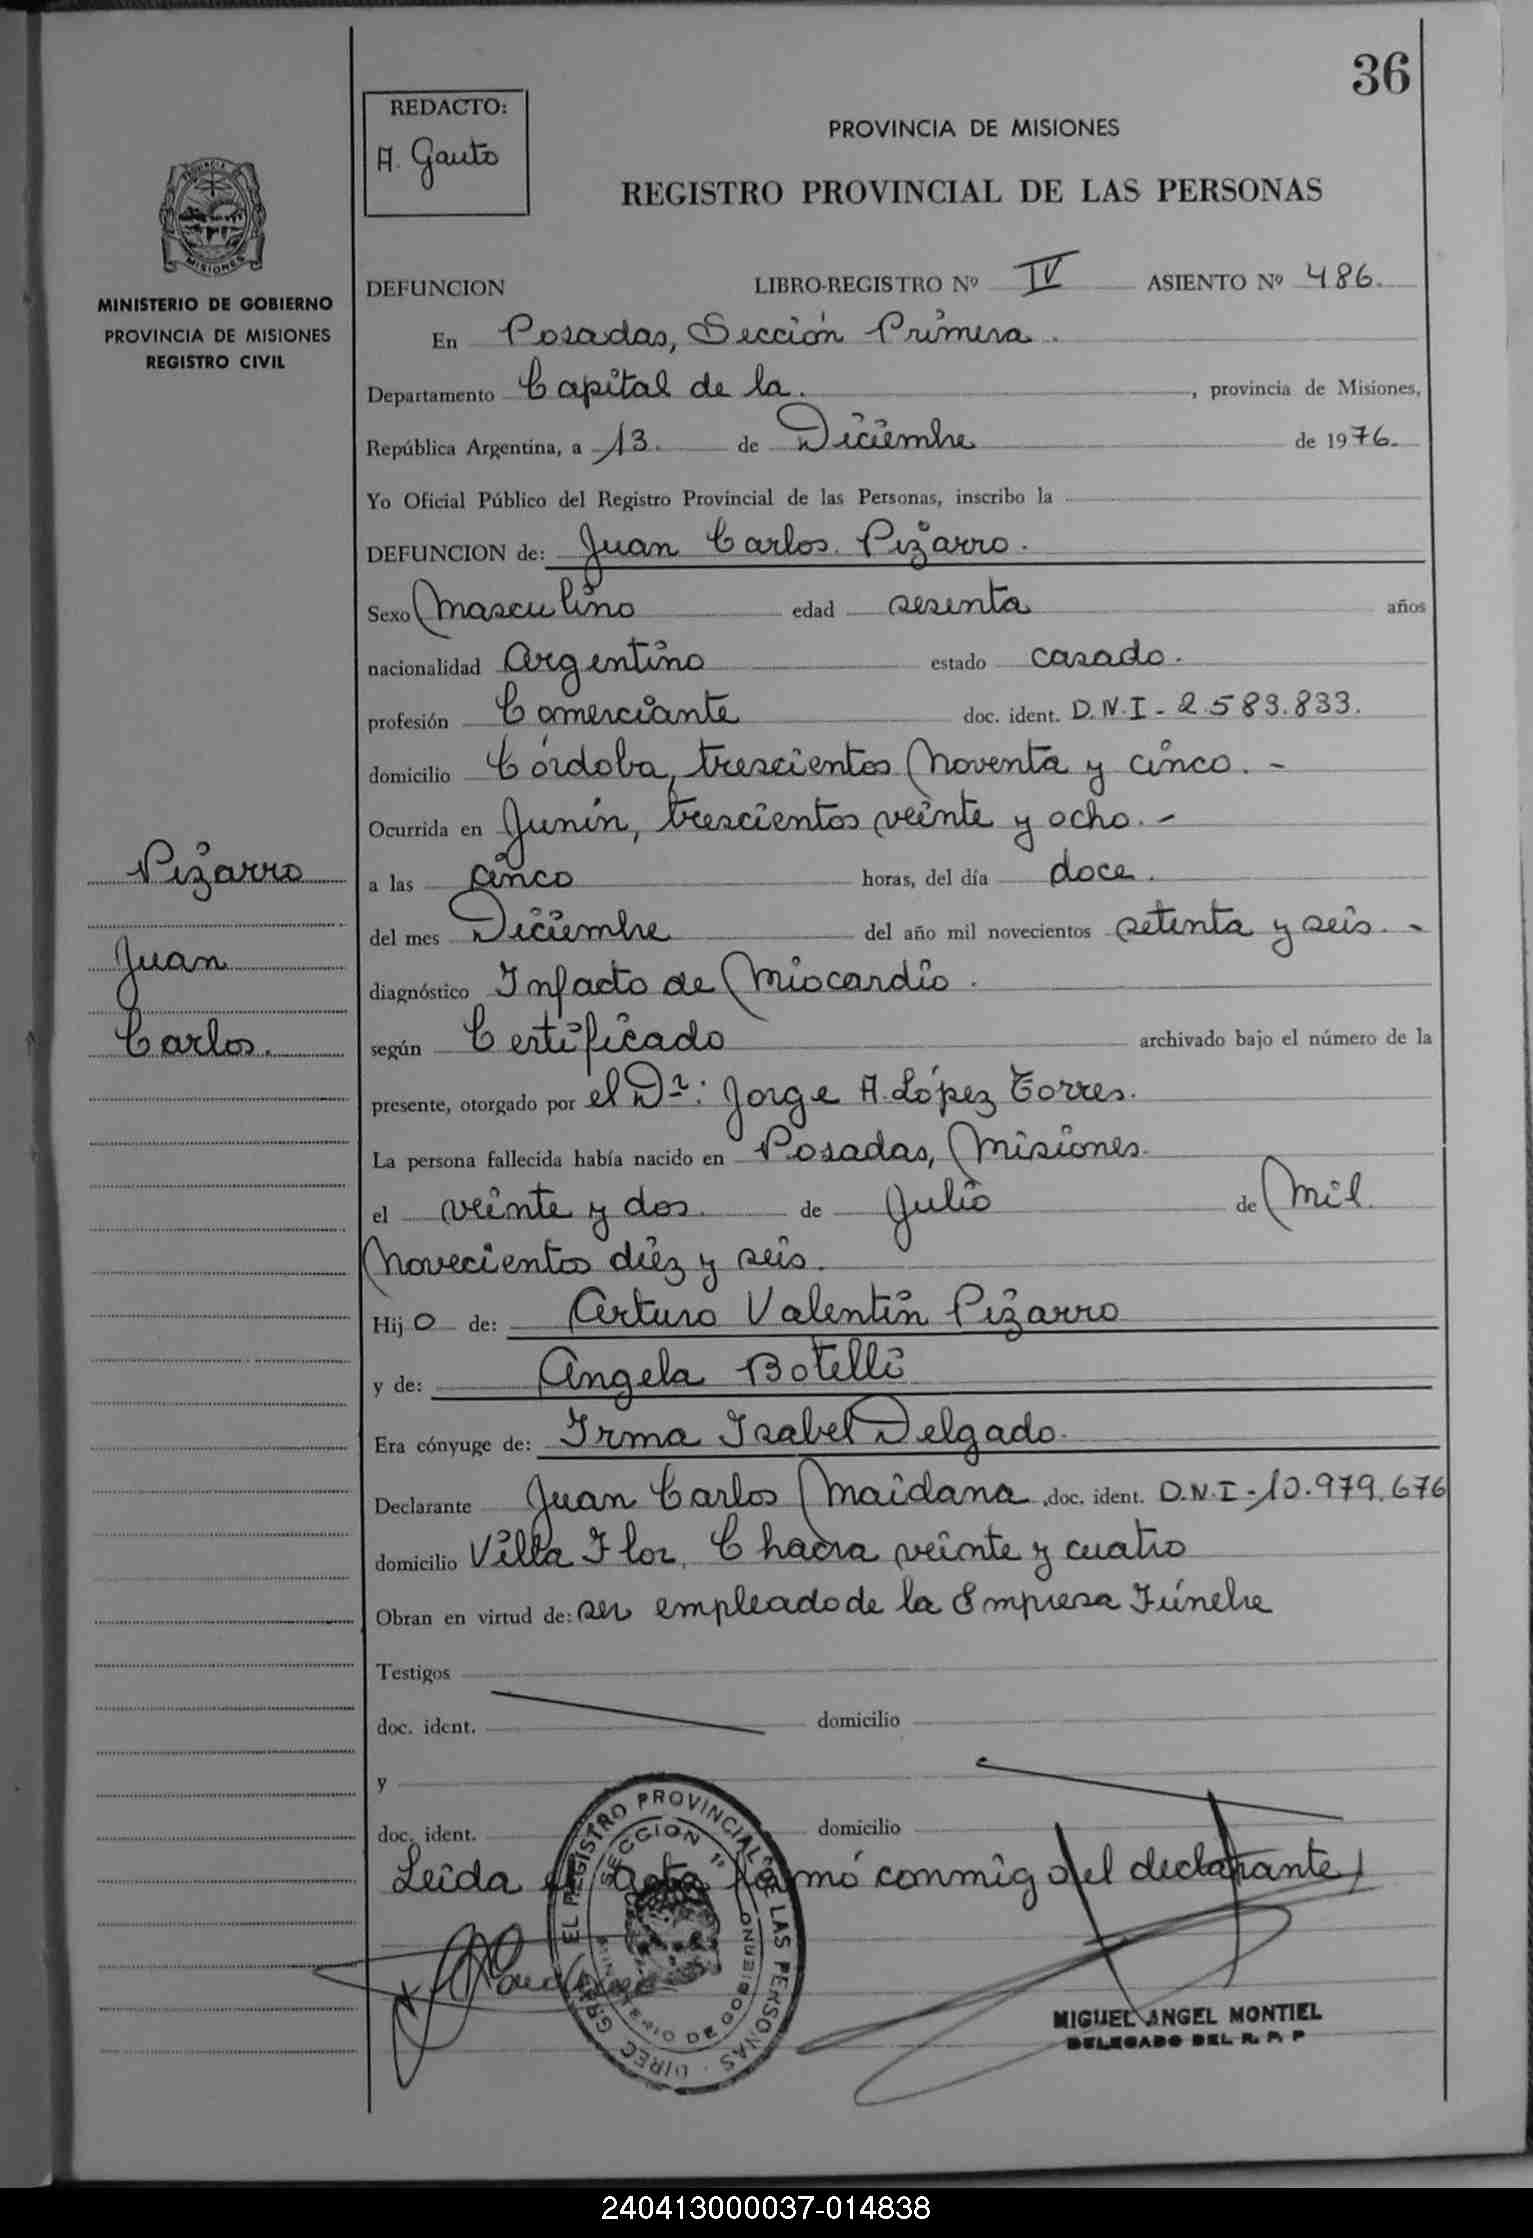 36
REDACTO:
A. Gauto
PROVINCIA DE MISIONES
REGISTRO PROVINCIAL DE LAS PERSONAS
PROVINCIA
MISIONES
MINISTERIO DE GOBIERNO
PROVINCIA DE MISIONES
REGISTRO CIVIL
DEFUNCION LIBRO-REGISTRO Nº IV ASIENTO Nº 486.
En Posadas, Sección Primera.
Departamento Capital de la. , provincia de Misiones,
República Argentina, a 13. de Diciembre de 1976.
Yo Oficial Público del Registro Provincial de las Personas, inscribo la
DEFUNCION de: Juan Carlos Pizarro.
Sexo Masculino edad sesenta años
nacionalidad Argentino estado casado.
profesión Comerciante doc. ident. D.N.I - 2.583.833.
domicilio Córdoba, trescientos Noventa y cinco. -
Ocurrida en Junín, trescientos veinte y ocho. -
a las cinco horas, del día doce.
del mes Diciembre del año mil novecientos setenta y seis. -
diagnóstico Infacto de Miocardio.
según Certificado archivado bajo el número de la
presente, otorgado por el Dr: Jorge A. López Torres.
La persona fallecida había nacido en Posadas, Misiones.
el veinte y dos. de Julio de Mil
Novecientos diez y seis.
Hijo de: Arturo Valentín Pizarro
y de: Angela Botelli
Era cónyuge de: Irma Isabel Delgado.
Declarante Juan Carlos Maidana, doc. ident. D.N.I - 10.979.676
domicilio Villa Flor, Chacra veinte y cuatro
Obran en virtud de: ser empleado de la Empresa Fúnebre
Testigos
doc. ident. domicilio
y
doc. ident. domicilio
Leida el Acta firmó conmigo el declarante
Pizarro
Juan
Carlos.
DIREC. GRAL. EL REGISTRO PROVINCIAL DE LAS PERSONAS
SECCION 1ª
MINISTERIO DE GOBIERNO
MIGUEL ANGEL MONTIEL
DELEGADO DEL R. P. P
240413000037-014838